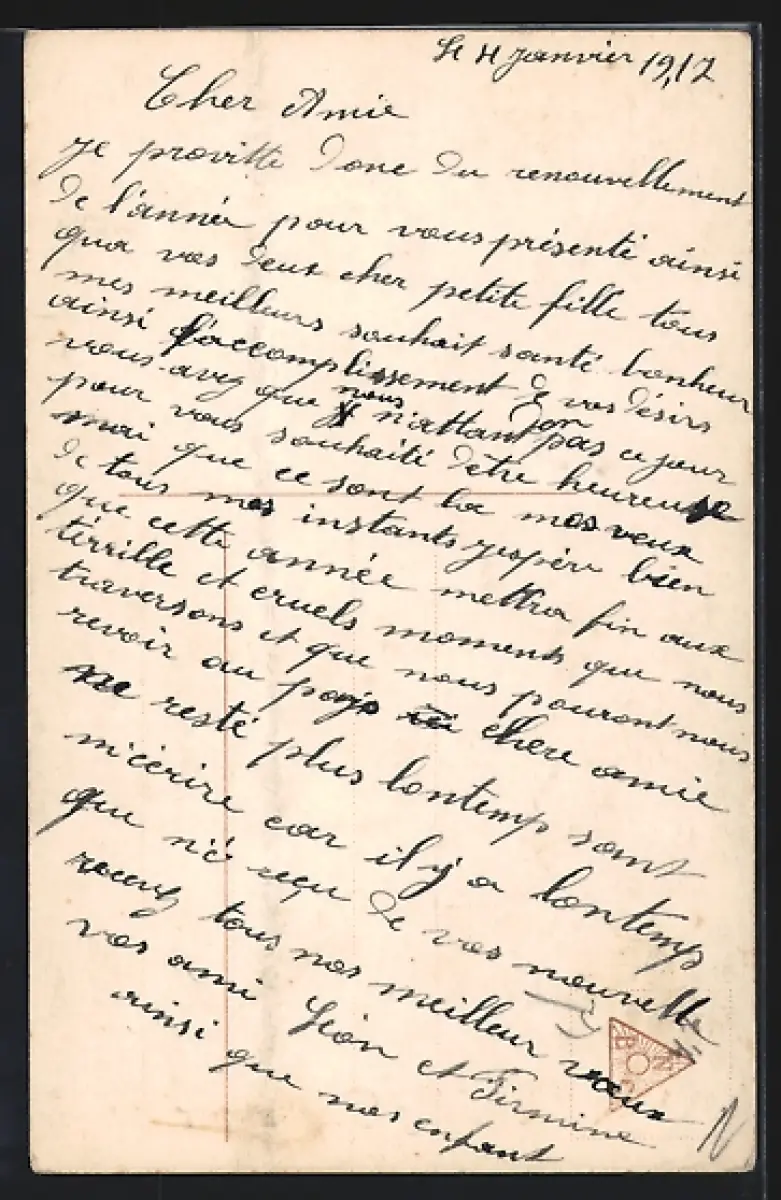 le 4 janvier 1917
Cher Amie
Je provitte donc du renouvellement
de l'année pour vous présenté ainsi
qua vos deux cher petite fille tous
mes meilleurs souhait santé bonheur
ainsi l'accomplissement de vos désirs
vous avez que nous n'attand pas ce jour
pour vous souhaité d'être heureuse
moi que ce sont la mes veux
de tous mes instants j'espère bien
que cette année mettra fin aux
térrible et cruels moments que nous
traversons et que nous pouront nous
revoir au pays chere amie
ne resté plus lontemp sant
m'écrire car il y a lontemps
que n'é reçu de vos nouvelle
recevez tous nos meilleur vœux
vos ami Léon et Firmine
ainsi que nos enfant
N